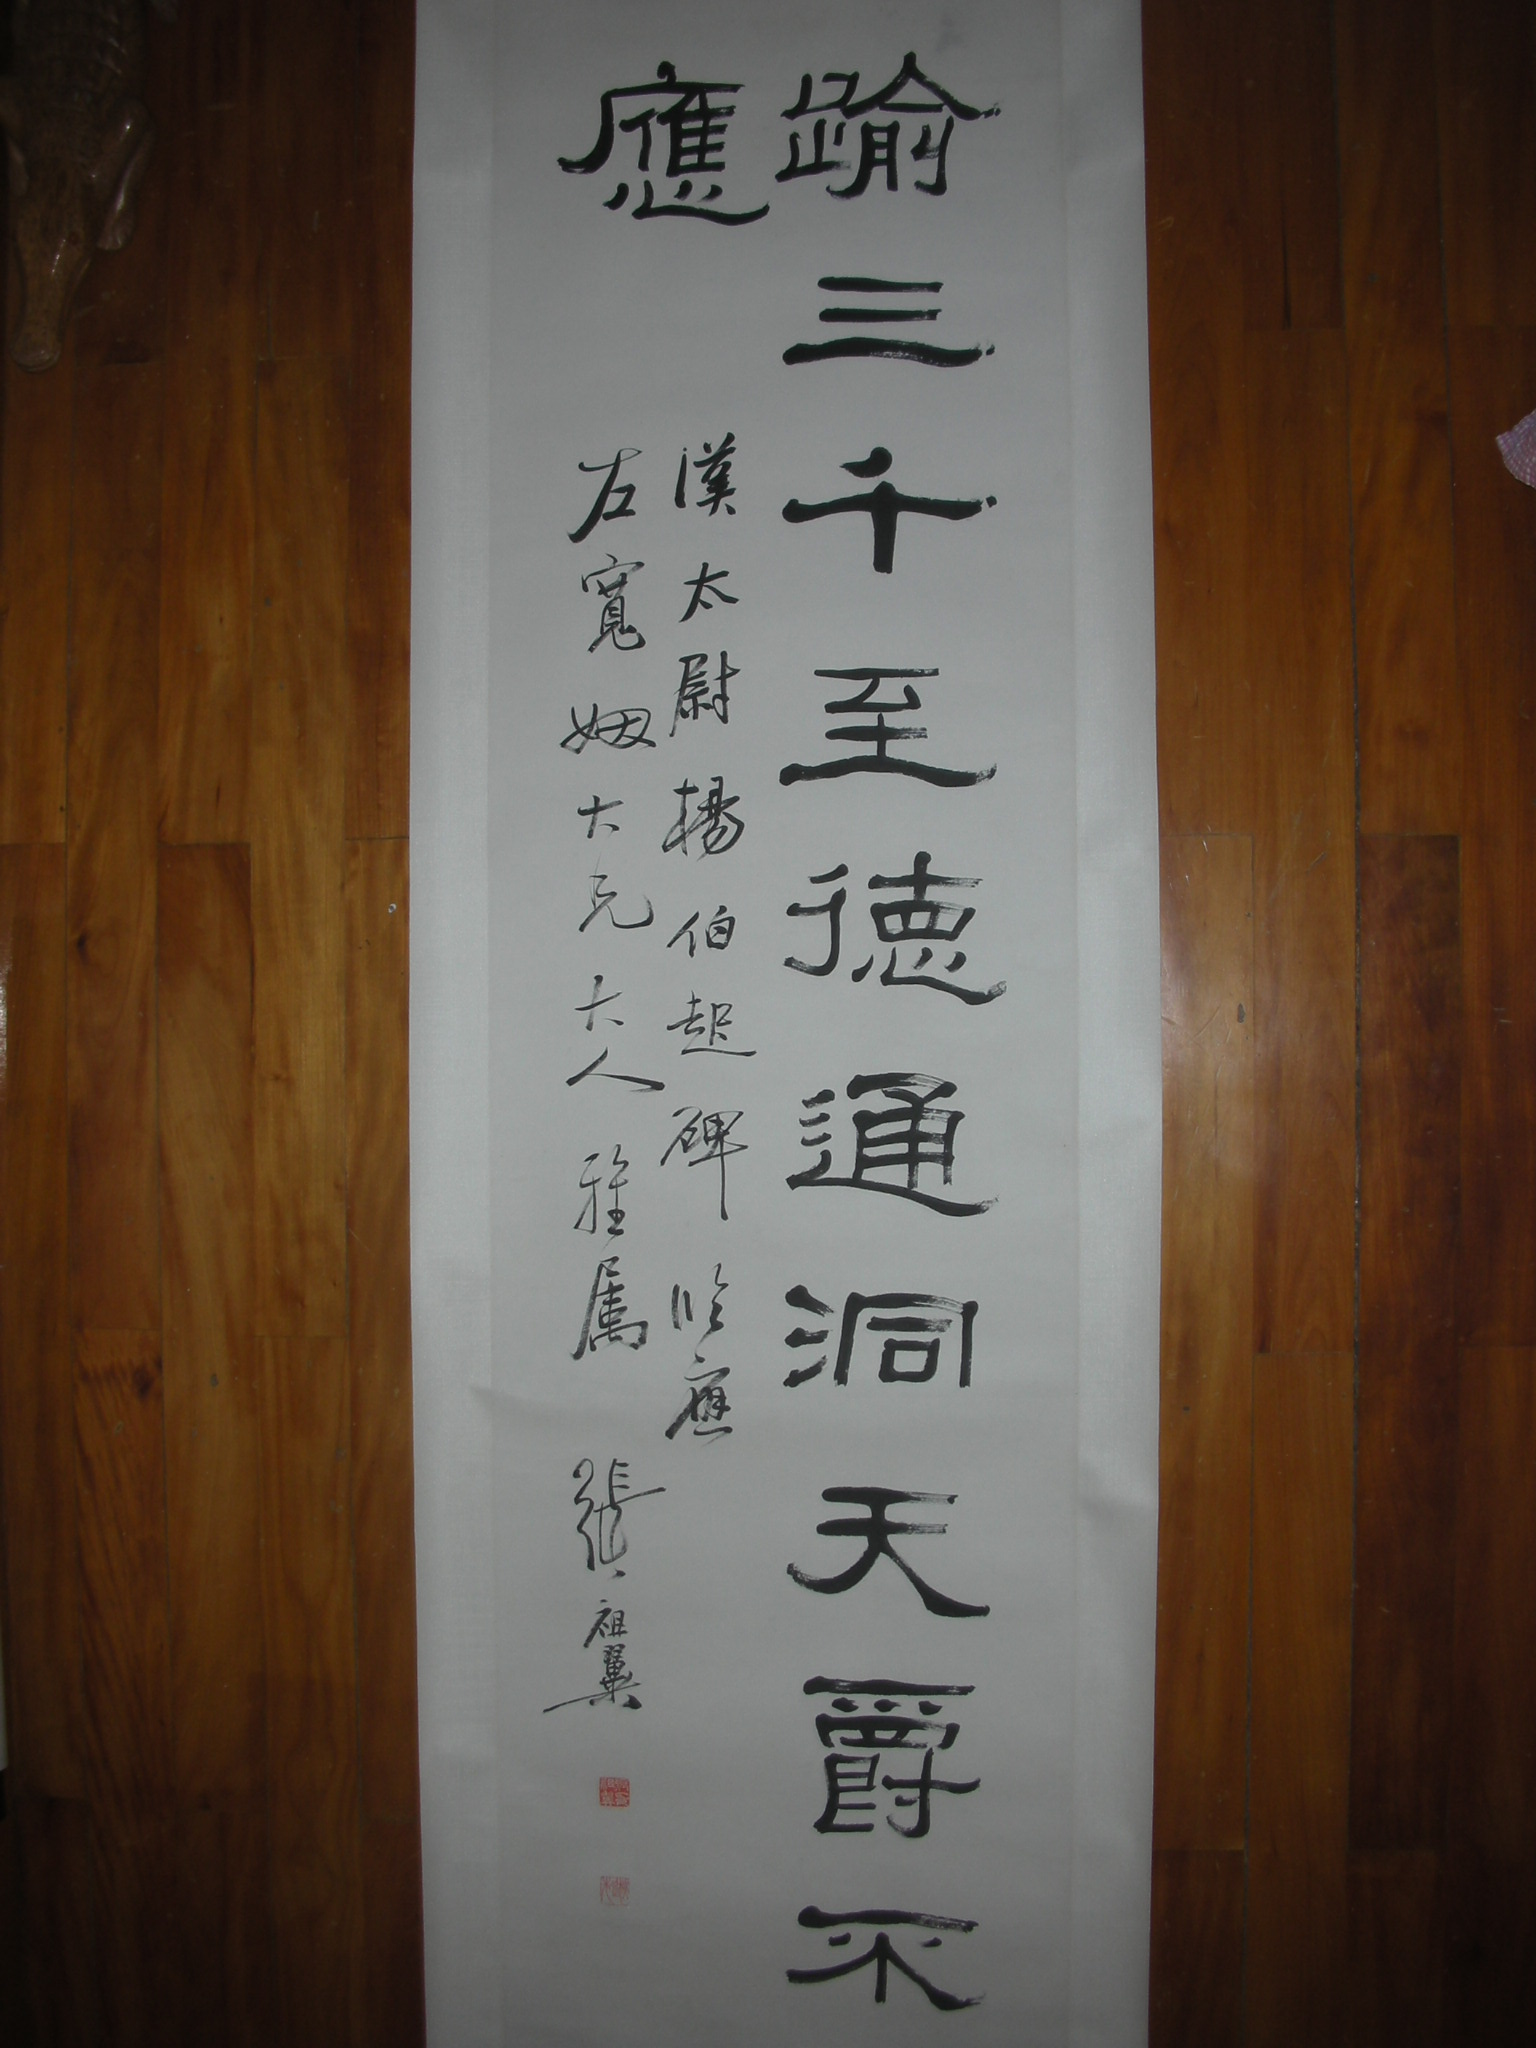 踰三千至德通洞天爵不
應
漢太尉楊伯起碑臨應
左寬姻大兄大人雅屬 張祖翼